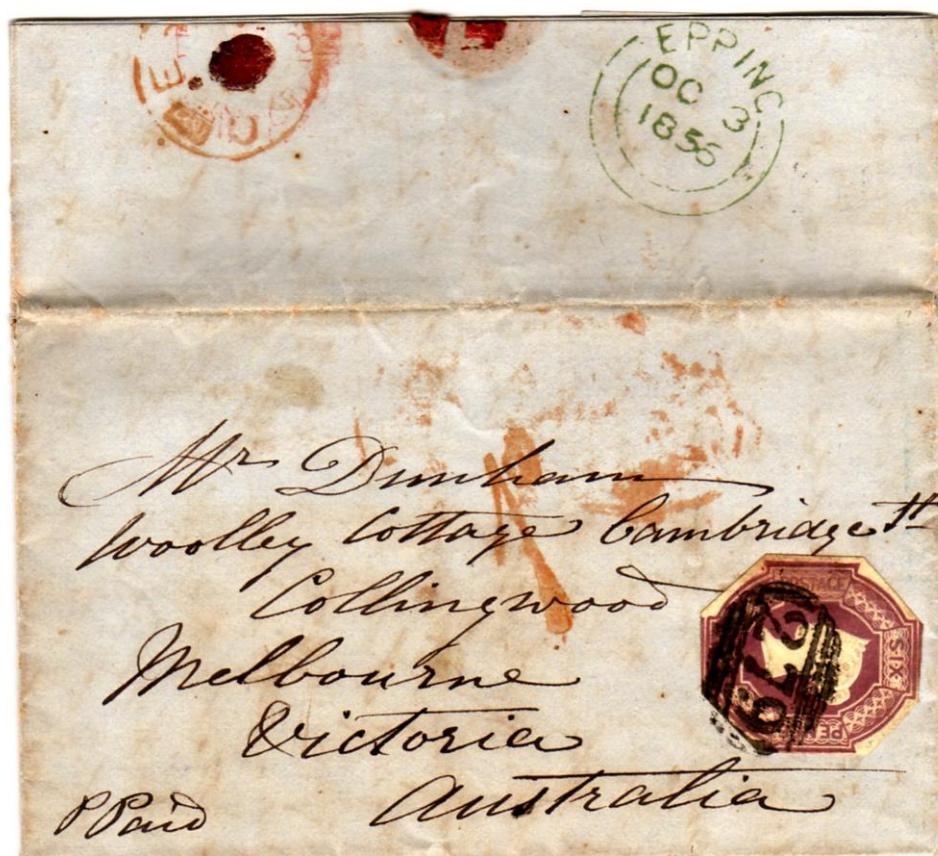 EPPING
OC 3
1856
Mr Dunham
Woolley Cottage Cambridge St
Collingwood
Melbourne
Victoria
Australia
P Paid
POSTAGE
SIX
279